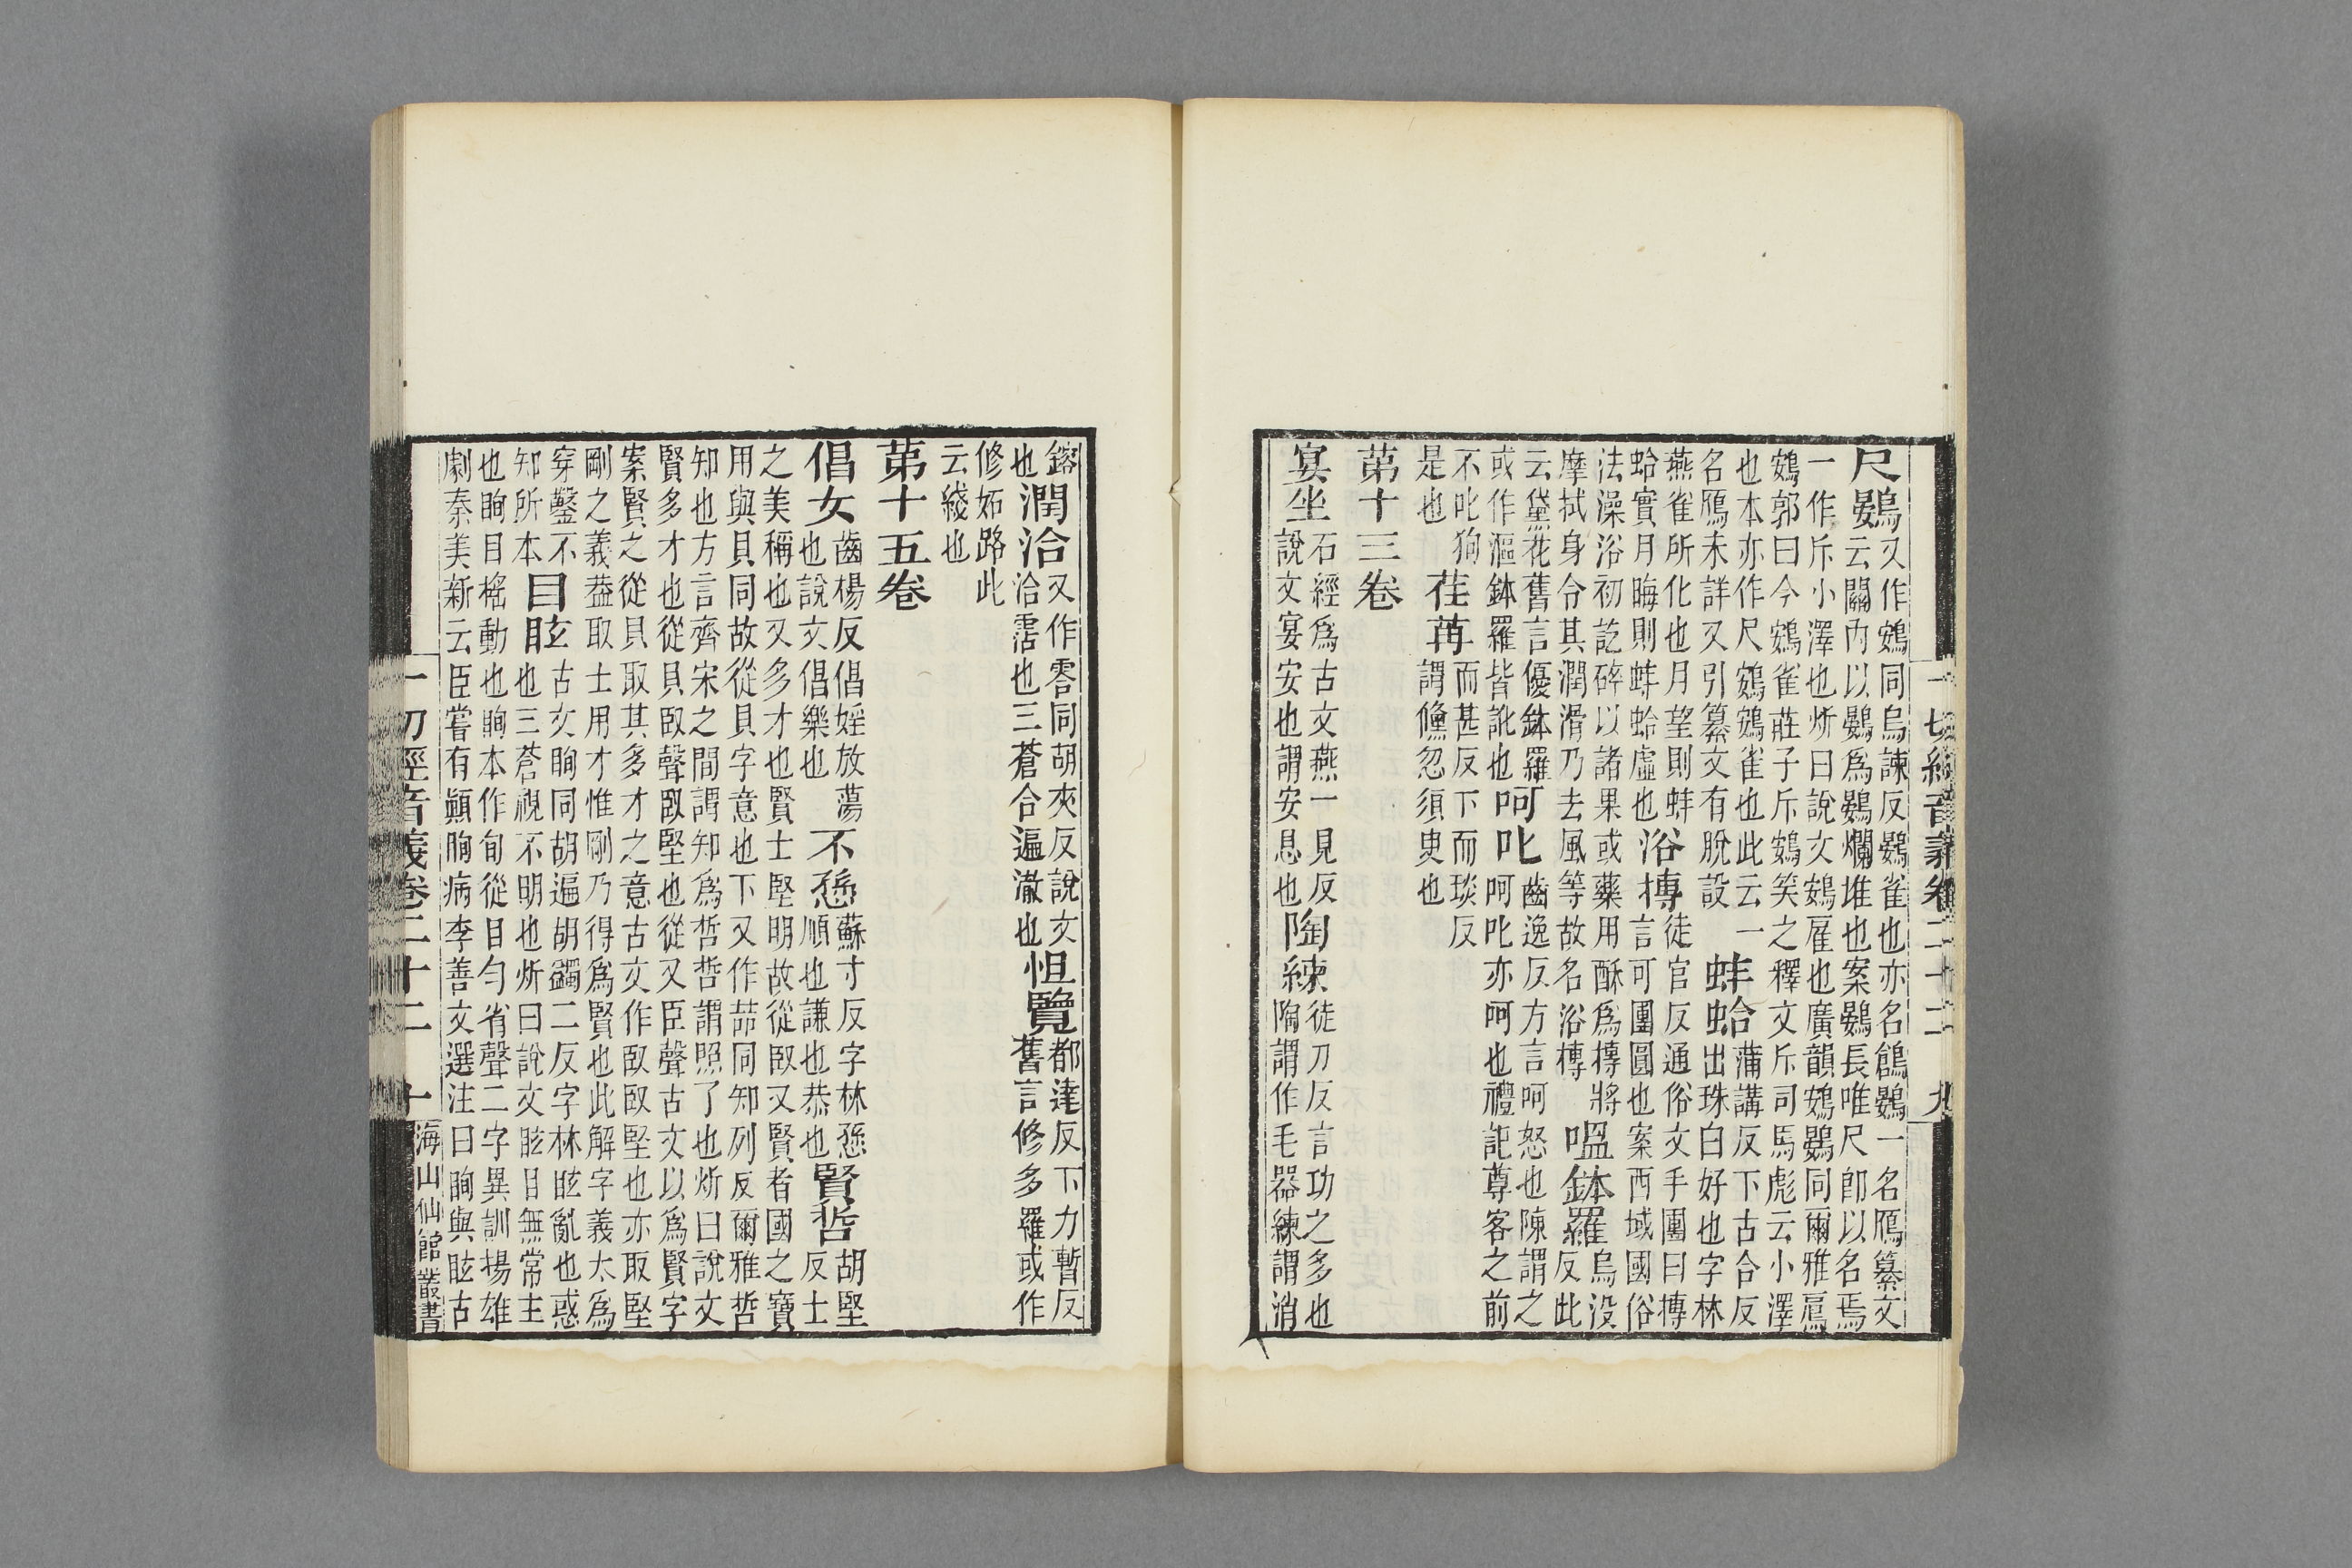 一切經音義卷二十二 九
尺鷃又作鴳同烏諫反鷃雀也亦名鶕鷃一名鴈纂文云關內以鷃爲鷃爛堆也案鷃長唯尺卽以名焉
一作斥小澤也炘曰說文鴳雇也廣韻鴳鷃同爾雅鳸鴳郭曰今鴳雀莊子斥鴳笑之釋文斥司馬彪云小澤
也本亦作尺鴳鴳雀也此云一名鴈未詳又引纂文有脫設蚌蛤蒲講反下古合反出珠白好也字林
燕雀所化也月望則蚌蛤實月晦則蚌蛤虛也浴摶徒官反通俗文手團曰摶言可團圓也案西域國俗
法澡浴初訖碎以諸果或藥用酥爲摶將摩拭身令其潤滑乃去風等故名浴摶嗢鉢羅烏没反此
云黛花舊言優鉢羅或作漚鉢羅皆訛也呵叱齒逸反方言呵怒也陳謂之呵叱亦呵也禮記尊客之前
不叱狗是也荏苒而甚反下而琰反謂儵忽須臾也
第十三卷
宴坐石經爲古文燕一見反說文宴安也謂安息也陶練徒刀反言功之多也陶謂作毛器練謂消
鎔也潤洽又作零同胡夾反說文洽霑也三蒼合遍澈也怛覽都達反下力暫反舊言修多羅或作
修妬路此云綫也
第十五卷
倡女齒楊反倡婬放蕩也說文倡樂也不愻蘇寸反字林愻順也謙也恭也賢哲胡堅反士
之美稱也又多才也賢士堅明故從臤又賢者國之寶用與貝同故從貝字意也下又作喆同知列反爾雅哲
知也方言齊宋之間謂知爲哲哲謂照了也炘曰說文賢多才也從貝臤聲臤堅也從又臣聲古文以爲賢字
案賢之從貝取其多才之意古文作臤臤堅也亦取堅剛之義葢取士用才惟剛乃得爲賢也此解字義太爲
穿鑿不知所本目眩古文眴同胡遍胡蠲二反字林眩亂也惑也三蒼視不明也炘曰說文眩目無常主
也眴目榣動也眴本作旬從目勻省聲二字異訓揚雄劇秦美新云臣嘗有顚眴病李善文選注曰眴與眩古
一切經音義卷二十二 十 海山仙館叢書